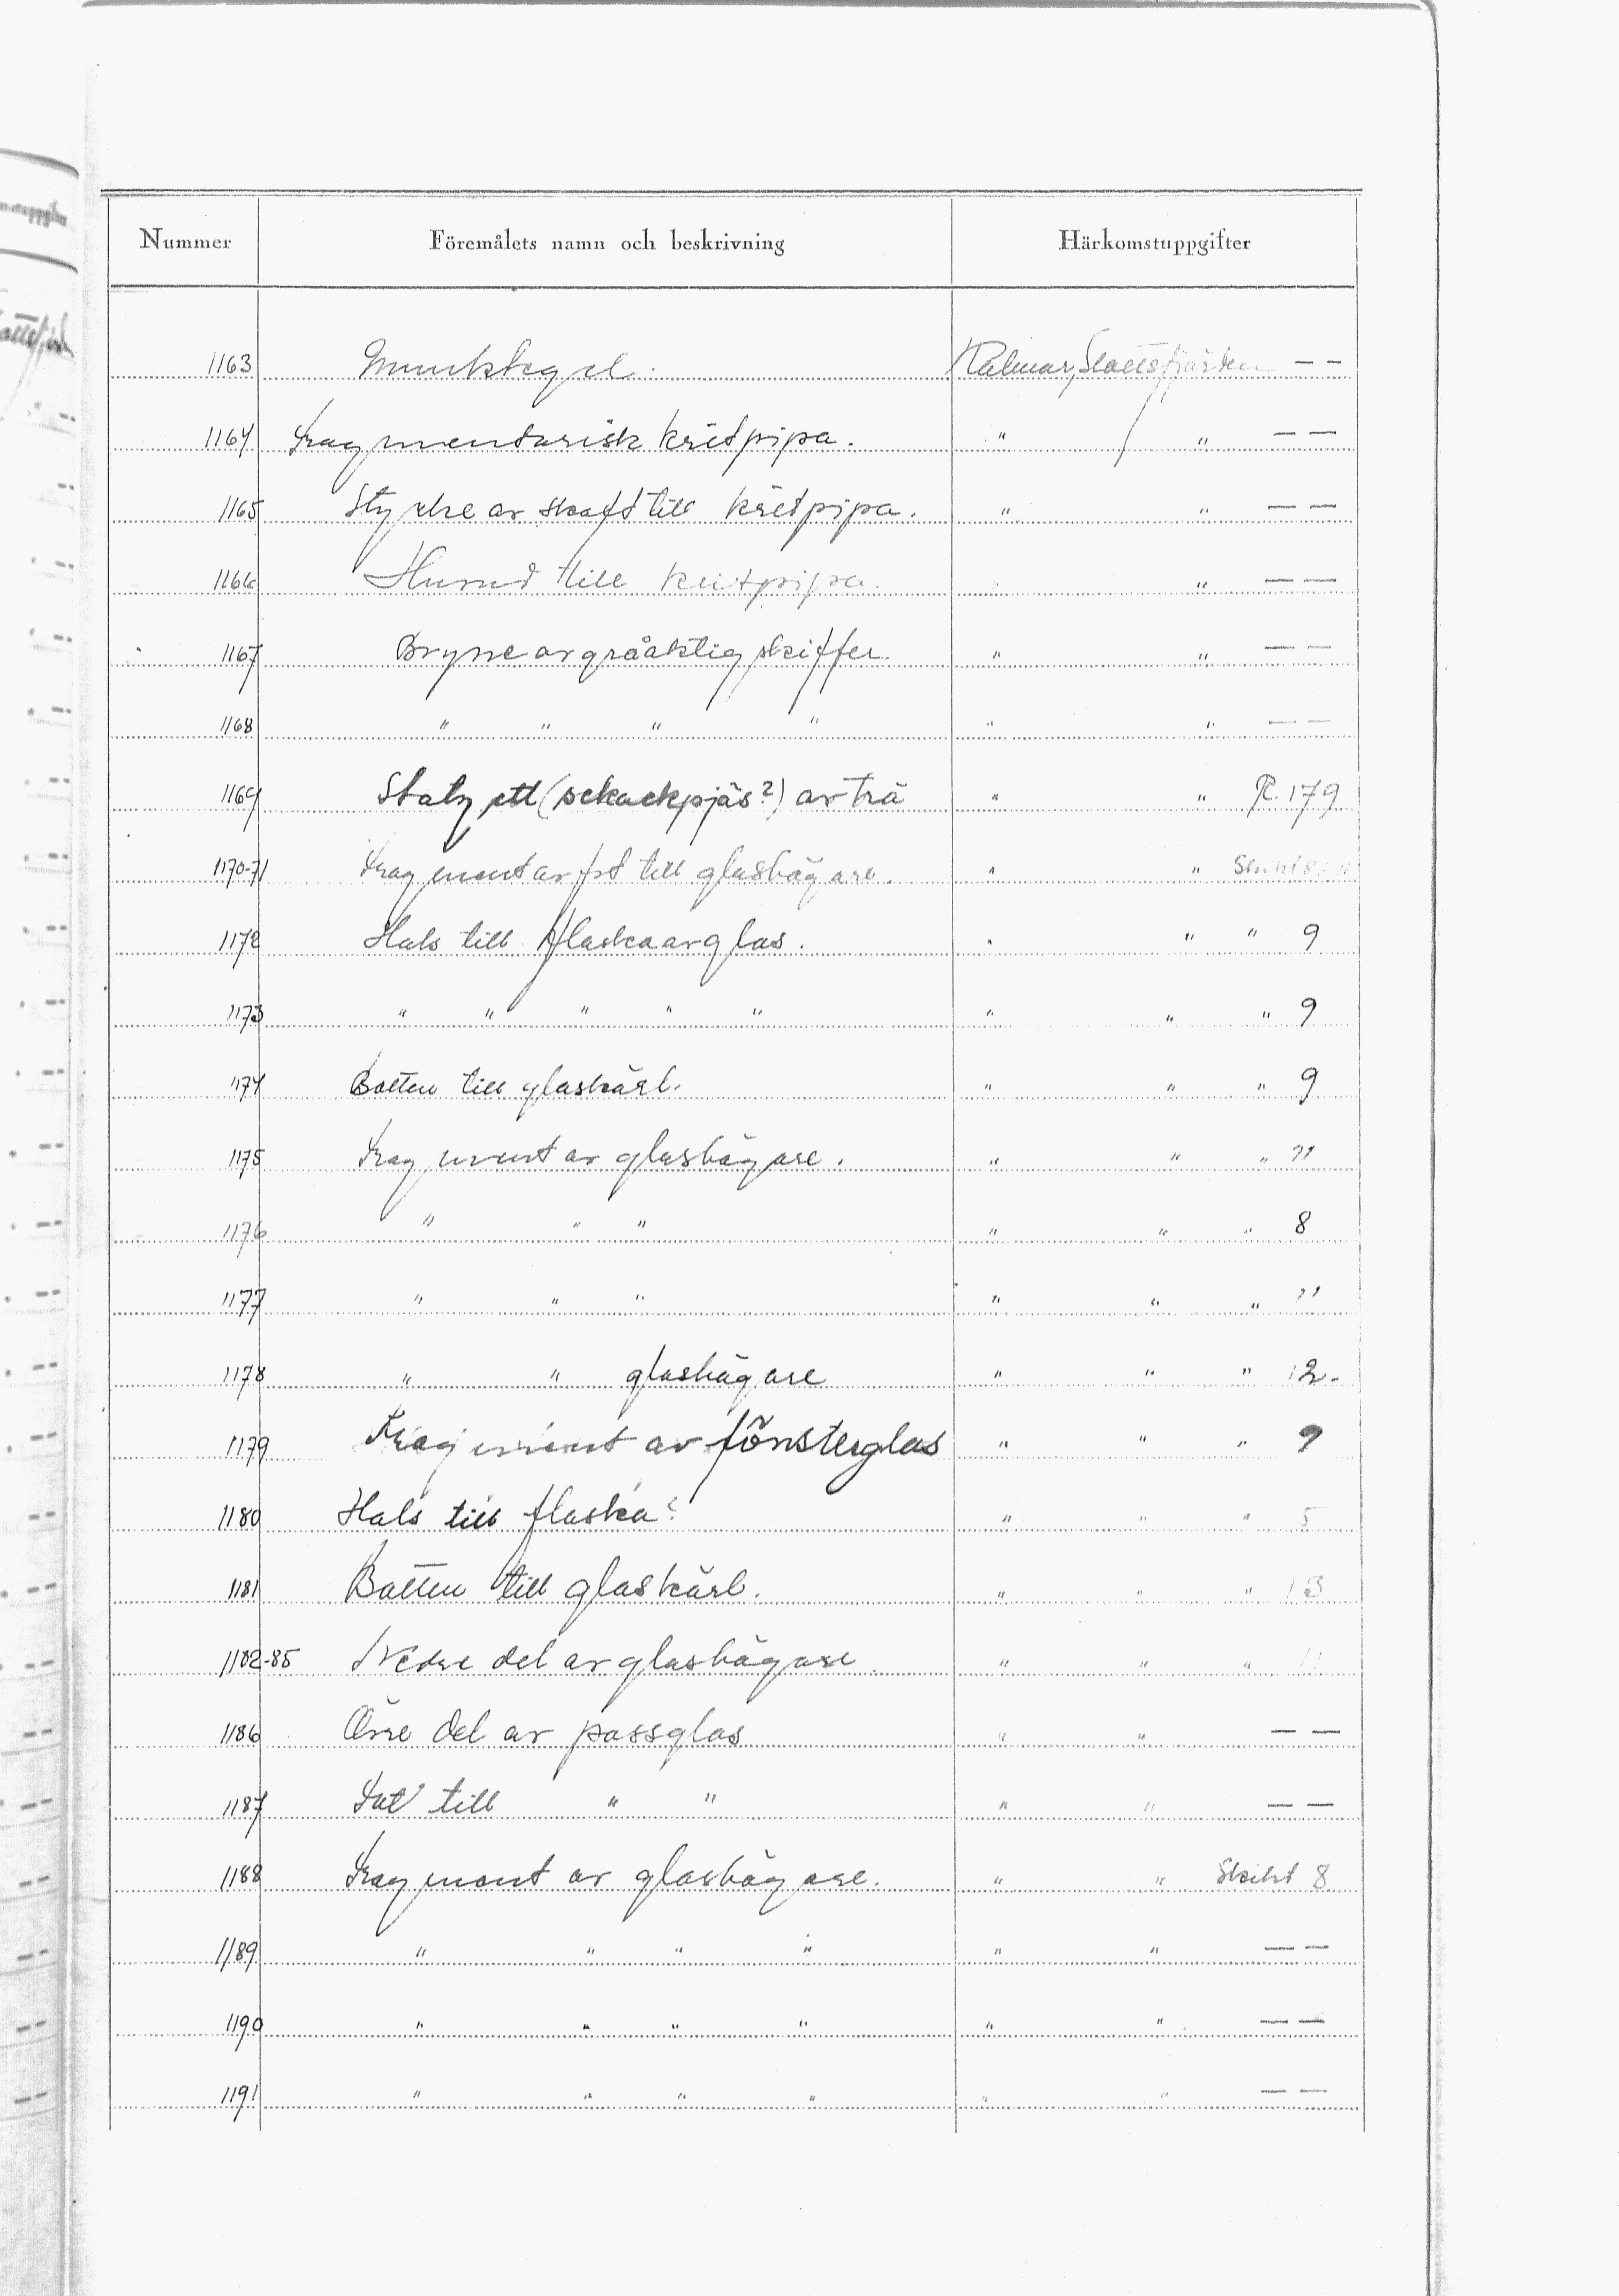 Nummer Föremålets namn och beskrivning Härkomstuppgifter
1163 Munktegel. Kalmar, Slottsfjärden — —
1164 Fragmentarisk kritpipa. " " — —
1165 Stycke av skaft till kritpipa. " " — —
1166 Huvud till kritpipa. " " — —
1167 Bryne av gråaktig skiffer. " " — —
1168 " " " " " " — —
1169 Statyett (schackpjäs?) av trä " " R. 179
1170-71 Fragment av fot till glasbägare. " " Skikt
1172 Hals till flaska av glas. " " " 9
1173 " " " " " " " " 9
1174 Botten till glaskärl. " " " 9
1175 Fragment av glasbägare. " " " 11
1176 " " " " " " 8
1177 " " " " " " 11
1178 " " glasbägare " " " 12.
1179 Fragment av fönsterglas " " " 9
1180 Hals till flaska? " " " 5
1181 Botten till glaskärl. " " " 13
1182-85 Nedre del av glasbägare. " " "
1186 Övre del av passglas " " — —
1187 Fot till " " " " — —
1188 Fragment av glasbägare. " " Skikt 8
1189 " " " " " " — —
1190 " " " " " " — —
1191 " " " " " " — —